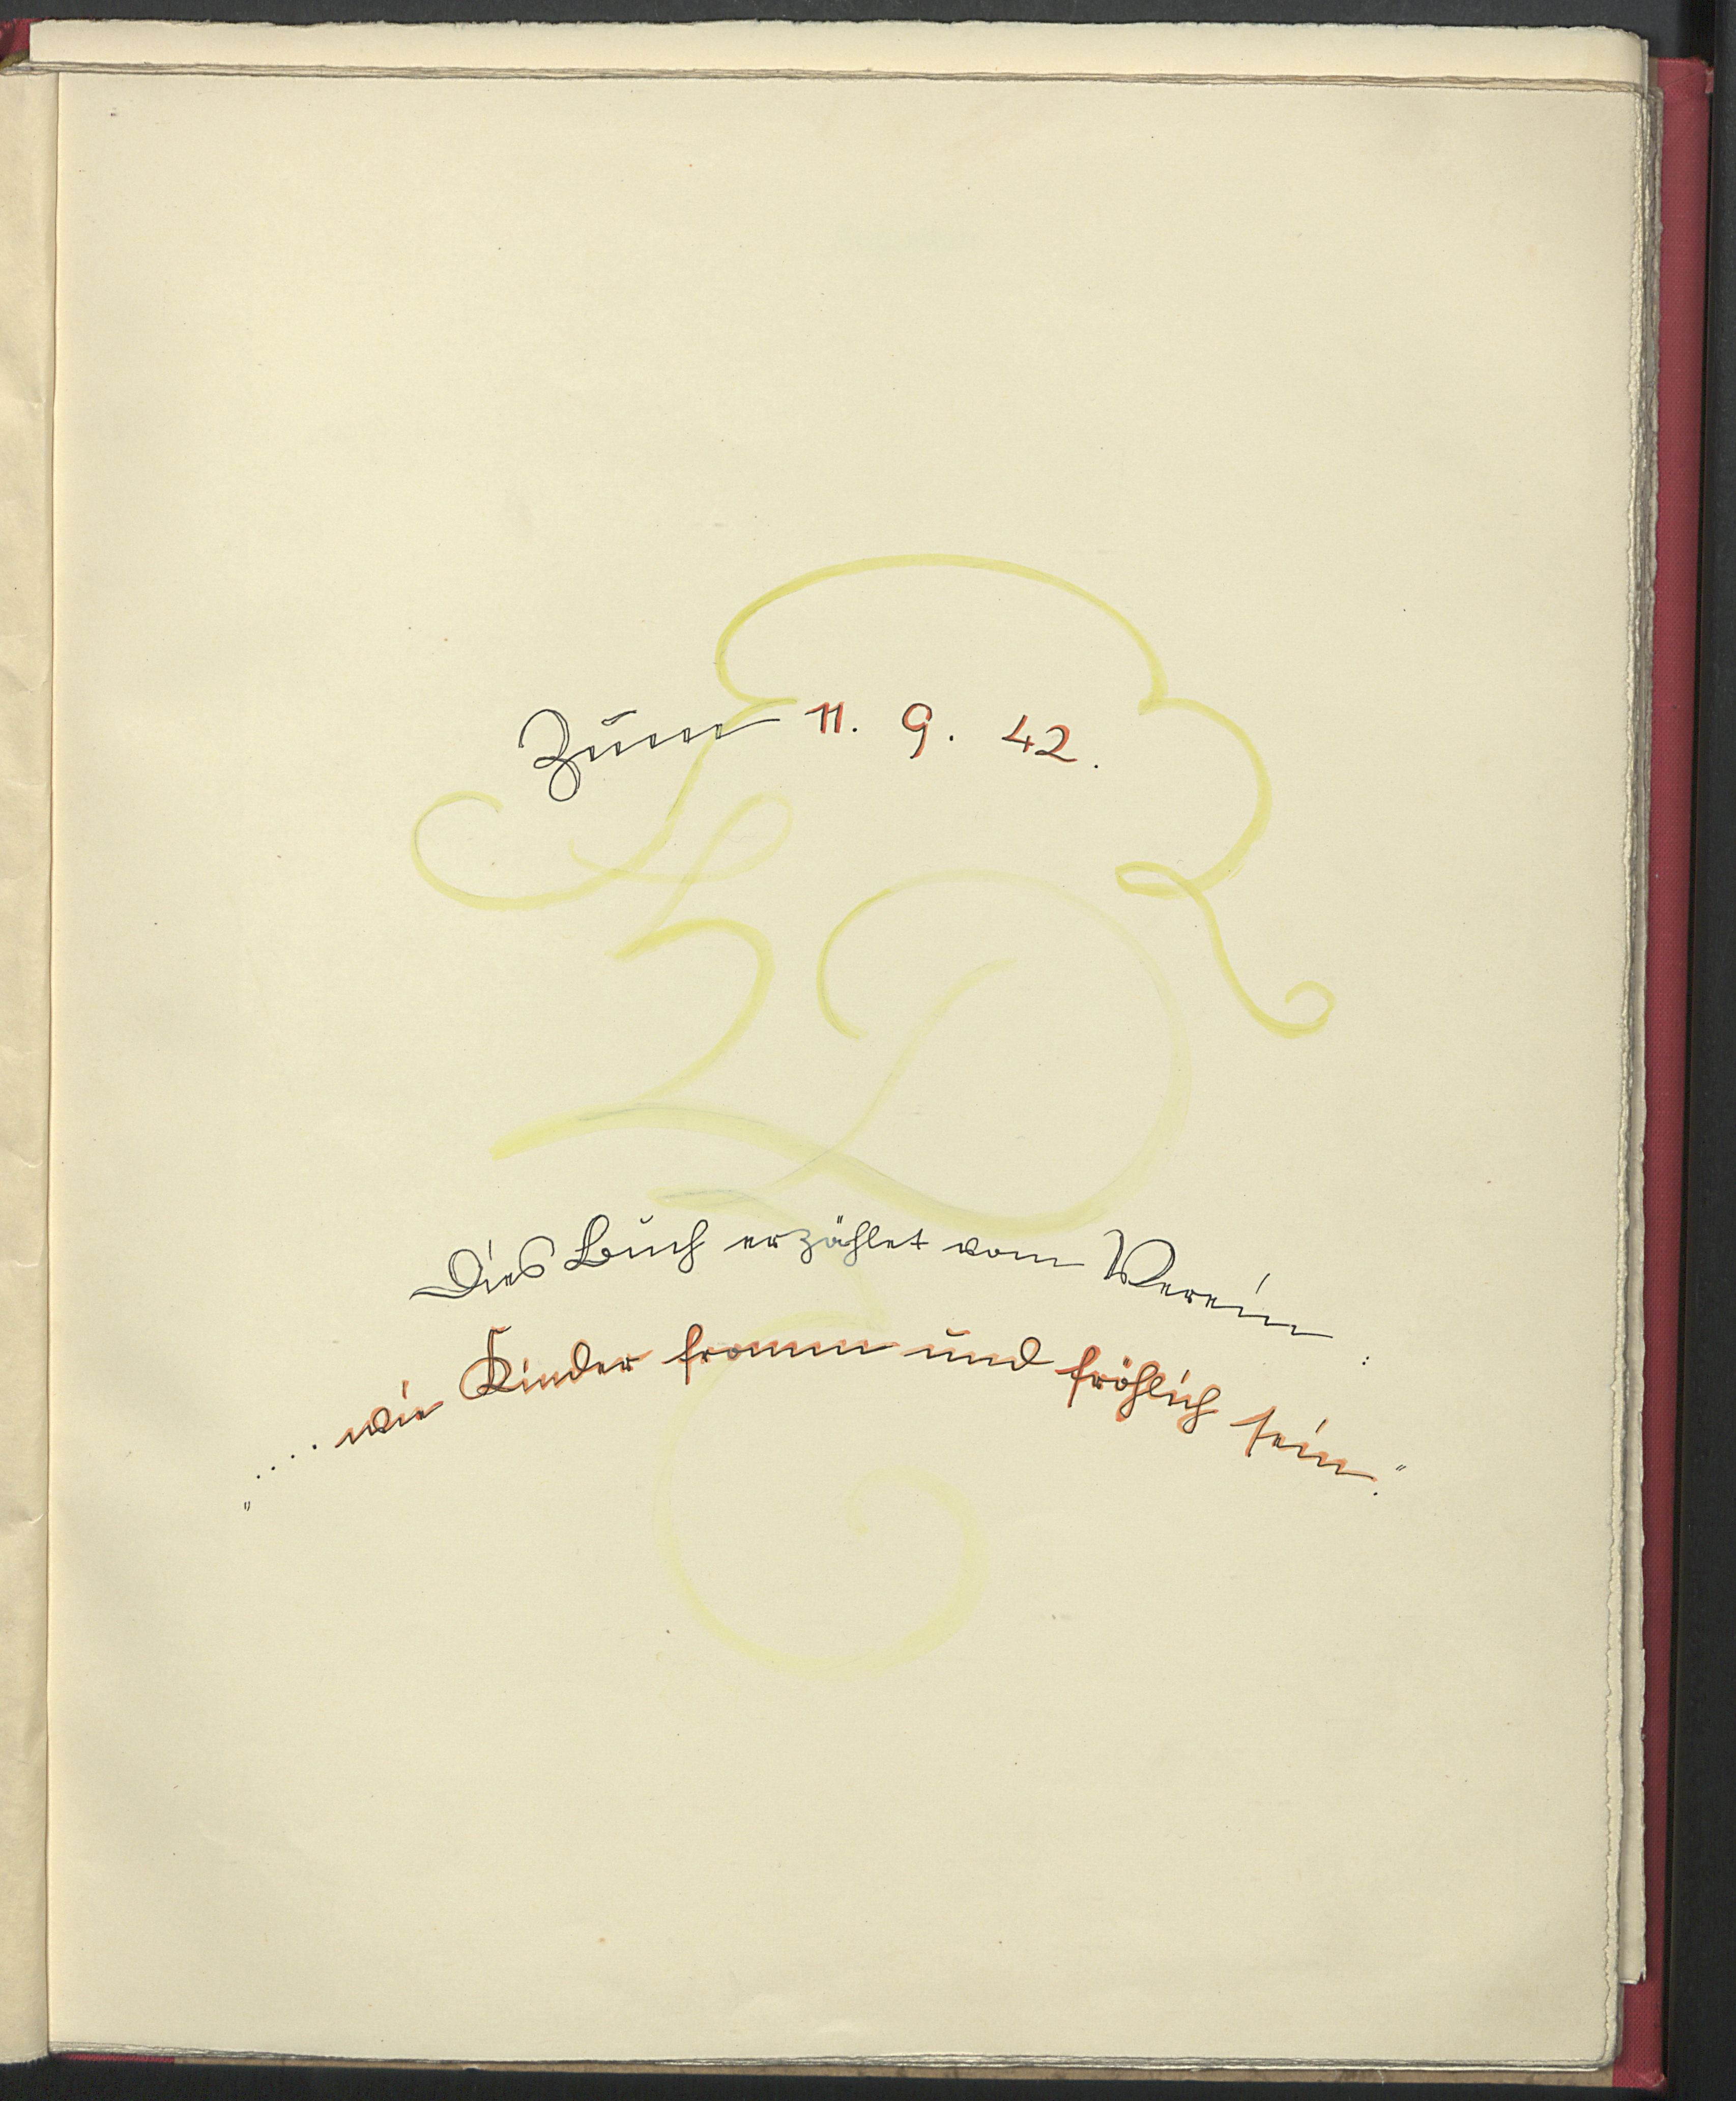 Zum 11. 9. 42.
Dies Buch erzählet vom Verein :
"....wie Kinder fromm und fröhlich sein."